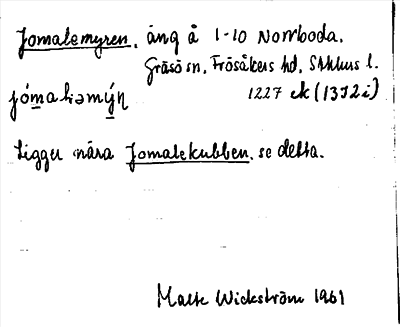 Jomalemyren, äng å 1-10 Norrboda,
Gräsö sn, Frösåkers hd, Sthlms l.
jómaləmýn̥ 1227 ek (13J2i)
Ligger nära Jomalekubben, se detta.
Malte Wickström 1961